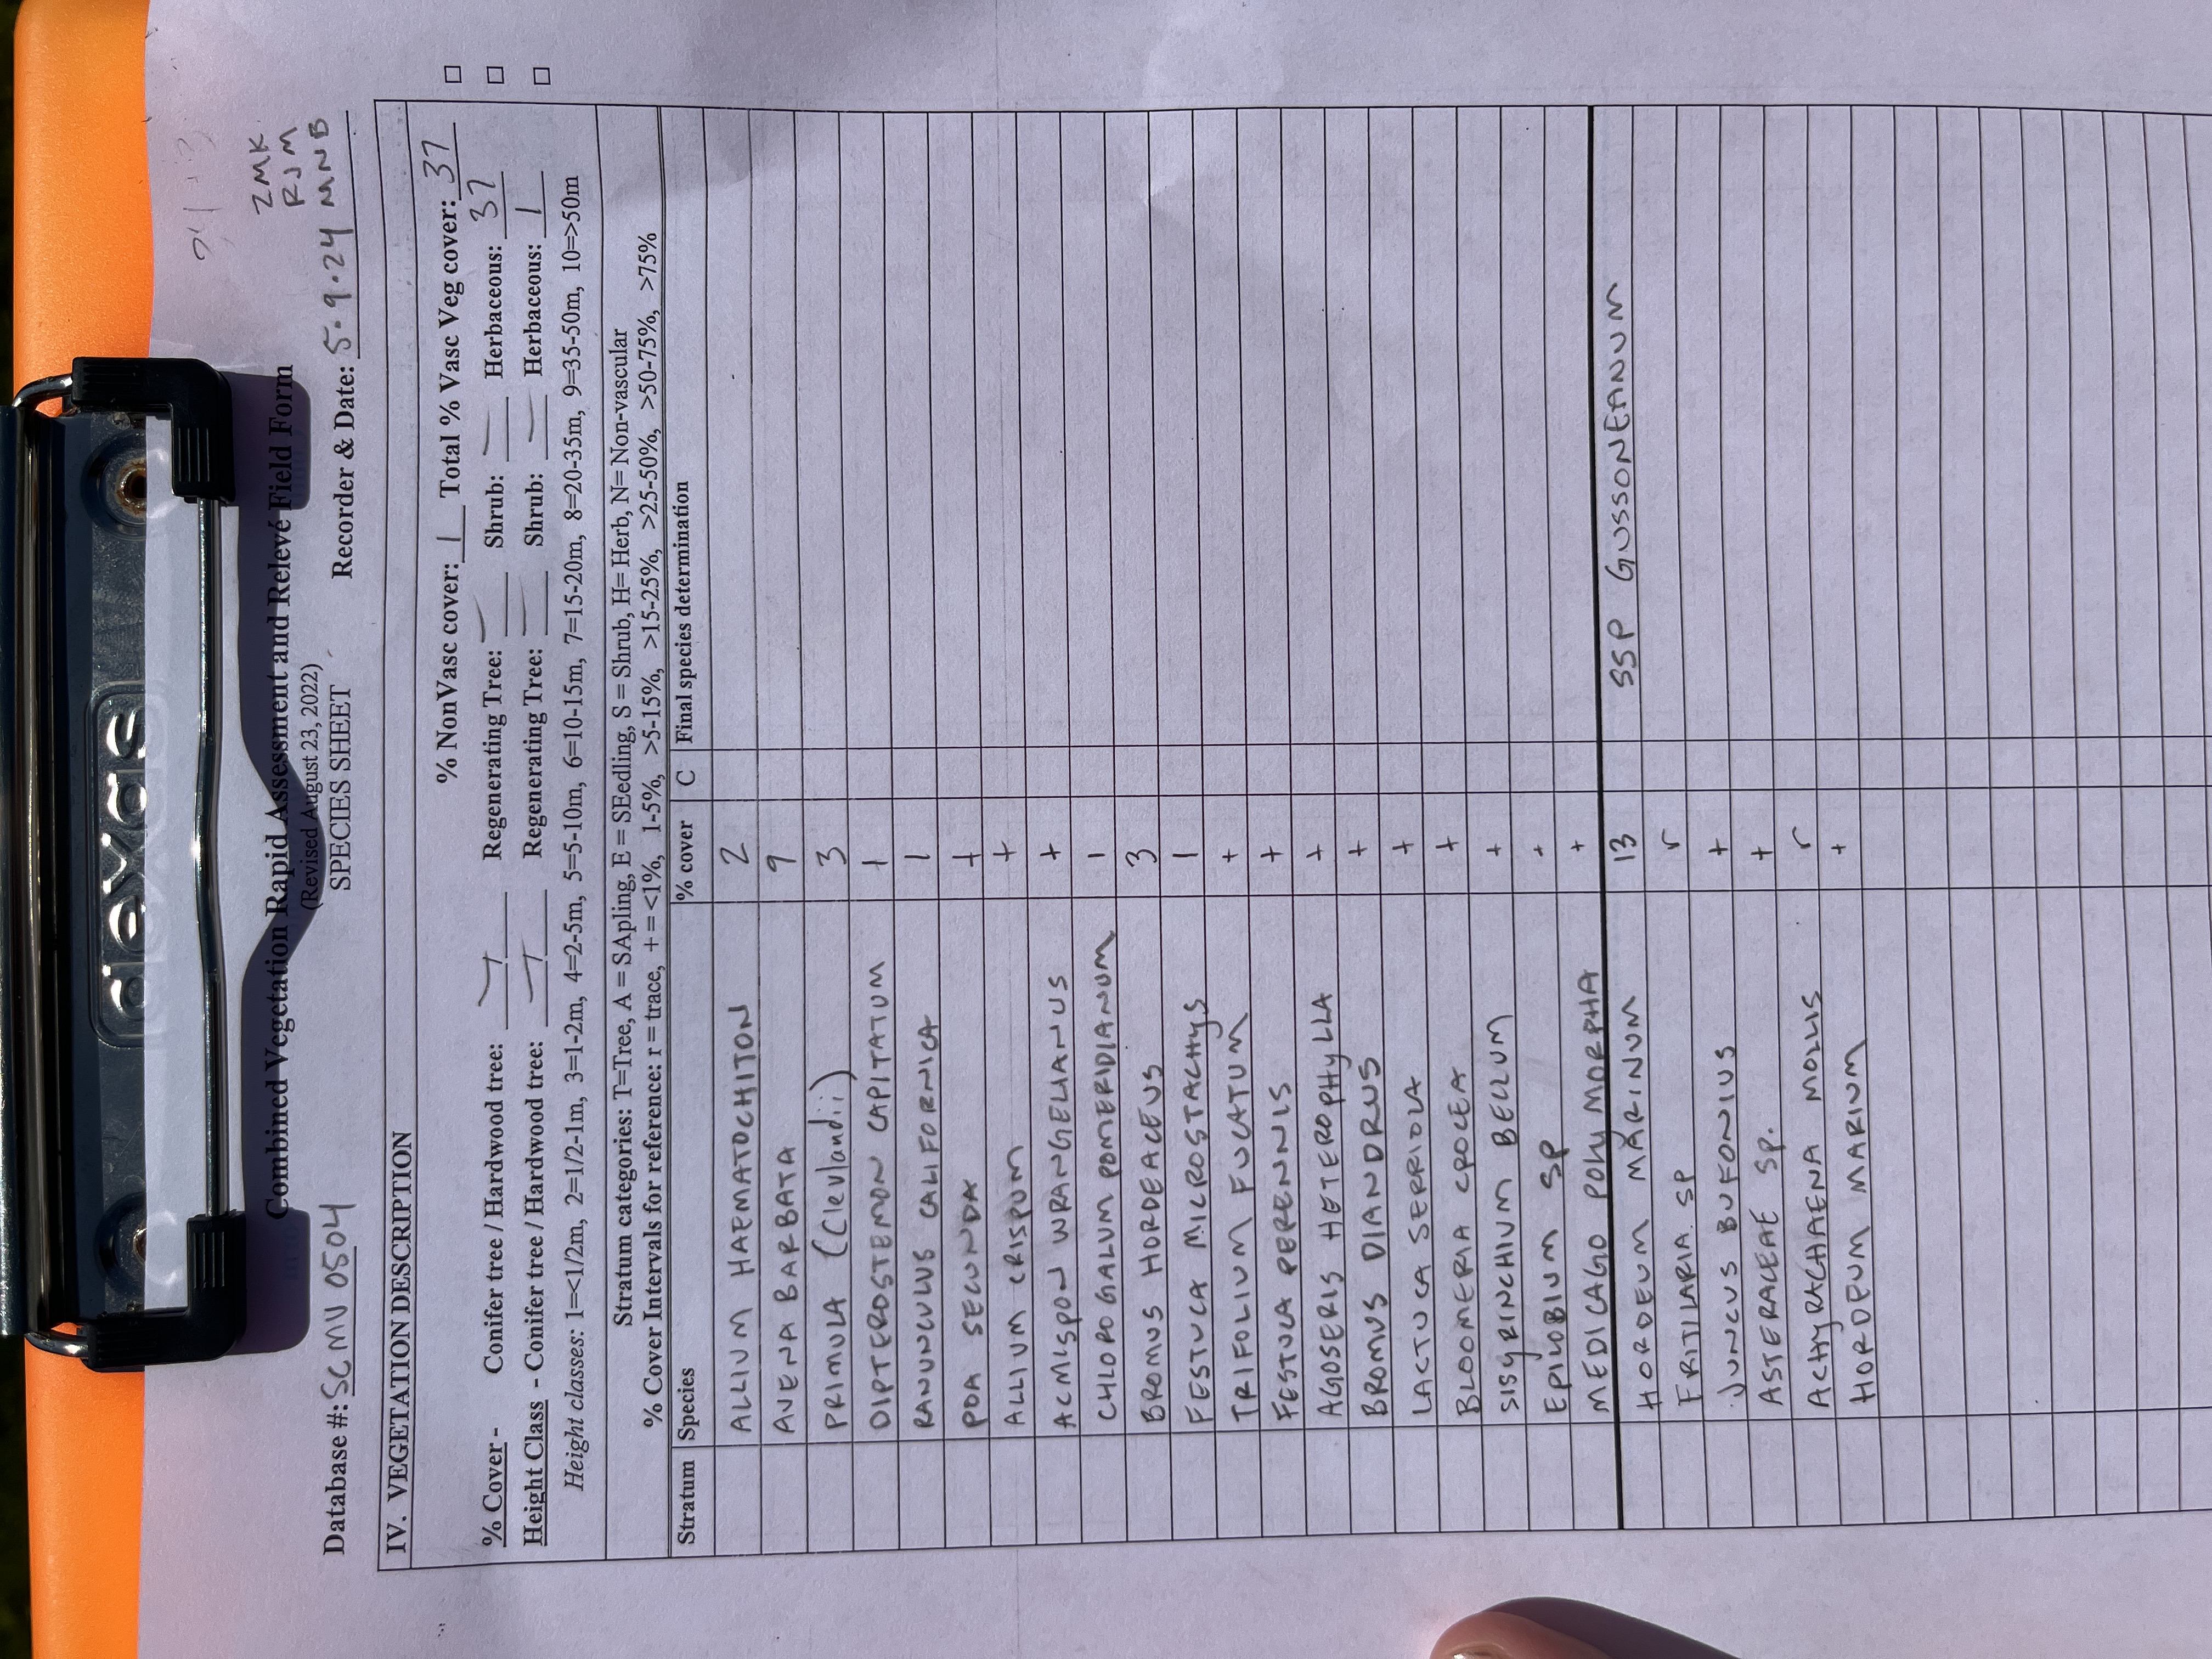 dexas
ZMK
RJM
Combined Vegetation Rapid Assessment and Relevé Field Form
(Revised August 23, 2022)
Database #: SCMU 0504 SPECIES SHEET Recorder & Date: 5.9.24 MNB
IV. VEGETATION DESCRIPTION
% NonVasc cover: 1 Total % Vasc Veg cover: 37
% Cover - Conifer tree / Hardwood tree: Regenerating Tree: — Shrub: — Herbaceous: 37
Height Class - Conifer tree / Hardwood tree: Regenerating Tree: — Shrub: — Herbaceous: 1
Height classes: 1=<1/2m, 2=1/2-1m, 3=1-2m, 4=2-5m, 5=5-10m, 6=10-15m, 7=15-20m, 8=20-35m, 9=35-50m, 10=>50m
Stratum categories: T=Tree, A = SApling, E = SEedling, S = Shrub, H= Herb, N= Non-vascular
% Cover Intervals for reference: r = trace, + = <1%, 1-5%, >5-15%, >15-25%, >25-50%, >50-75%, >75%
Stratum Species % cover C Final species determination
ALLIUM HAEMATOCHITON 2
AVENA BARBATA 9
PRIMULA (Clevlandii) 3
DIPTEROSTEMON CAPITATUM +
RANUNCULUS CALIFORNICA 1
POA SECUNDA +
ALLIUM CRISPUM +
ACMISPON WRANGELIANUS +
CHLOROGALUM POMERIDIANUM 1
BROMUS HORDEACEUS 3
FESTUCA MICROSTACHYS 1
TRIFOLIUM FUCATUM +
FESTUCA PERENNIS +
AGOSERIS HETEROPHYLLA +
BROMUS DIANDRUS +
LACTUCA SERRIOLA +
BLOOMERIA CROCEA +
SISYRINCHIUM BELLUM +
EPILOBIUM SP +
MEDICAGO POLYMORPHA +
HORDEUM MARINUM 13 SSP GUSSONEANUM
FRITILARIA SP r
JUNCUS BUFONIUS +
ASTERACEAE SP. +
ACHYRACHAENA MOLLIS r
HORDEUM MARIUM +